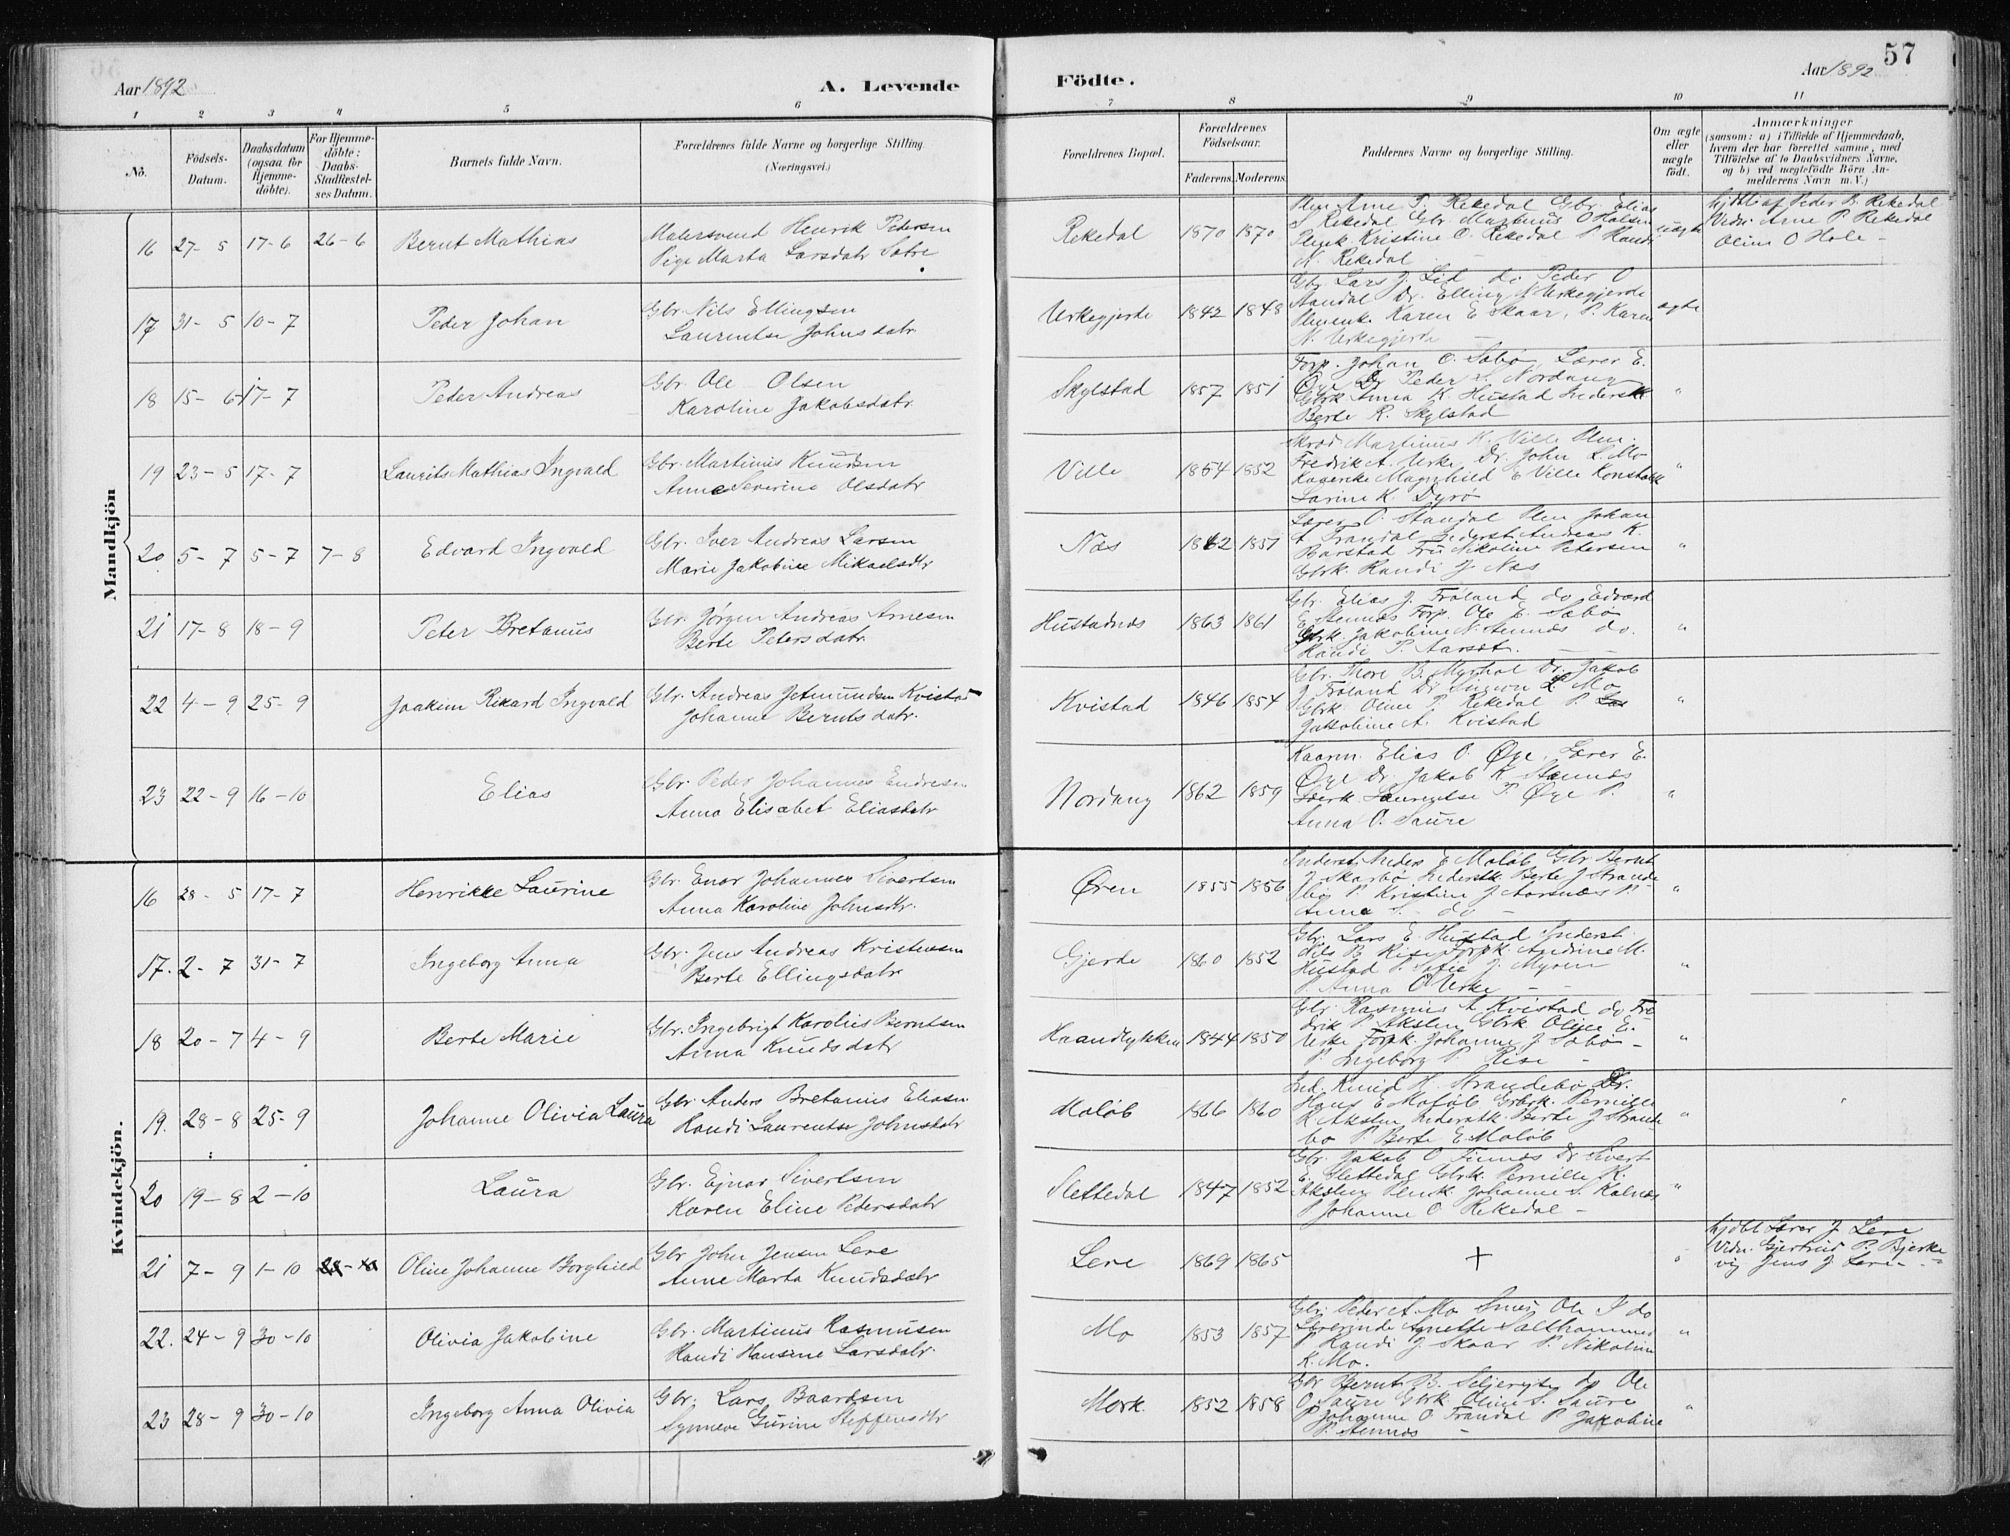 57
Aar 1892
A. Levende
Födte.
Aar 1892
1 2 3 4 5 6 7 8 9 10 11
No.
Födsels-Datum.
Daabsdatum (ogsaa for Hjemme-döbte).
For Hjemme-döbte: Daabs-Stadfæstel-ses Datum.
Barnets fulde Navn.
Forældrenes fulde Navne og borgerlige Stilling. (Næringsvei.)
Forældrenes Bopæl.
Forældrenes Födselsaar.
Faderens. Moderens.
Faddernes Navne og borgerlige Stilling.
Om ægte eller uægte födt.
Anmærkninger (saasom: a) i Tilfælde af Hjemmedaab, hvem der har forrettet samme, med Tilföielse af to Daabsvidners Navne, og b) ved uægtefödte Börn An-melderens Navn m. V.)
Mandkjön
16 27-5 17-6 26-6 Bernt Mathias
Malersvend Henrik Petersen
Pige Marta Larsdatr Sætre
Rekedal 1870 1870
Plen Arne P. Rekedal Gbr. Elias
Rekedal Gbr. Martinus O Holsen
Kristine O. Rekedal P. Randi
N. Rekedal
uægte
hjdbt af Peder P. Rekedal
Vidn. Arne P. Rekedal
Oline O Hole -
17 31-5 10-7 Peder Johan
Gbr. Nils Ellingsen
Laurentse Johnsdatr
Urkegjerde 1842 1848
Gbr Lars J. Lid do Peder O
Aandal Dr. Elling N Urkegjerde
Karen E Skaar, P. Karen
N. Urkegjerde -
ægte
18 15-6 17-7 Peter Andreas
Gbr. Ole Olsen
Karoline Jakobsdatr
Skylstad 1857 1851
Forp. Johan O. Sæbø, Lærer E.
Øye Dr Peder S. Nordang
Gbrk Anna K. Hustad Inderstk
Berte R. Skylstad
"
19 23-5 17-7 Laurits Mathias Ingvald
Gbr. Martinus Knudsen
Anne Severine Olsdatr
Ville 1854 1852
Martinus K. Ville Plen
Fredrik A. Urke, Dr. John L. Mo
Magnhild E Ville
Larine K. Dyrø
"
20 5-7 5-7 7-8 Edvard Ingvald
Gbr. Iver Andreas Larsen
Marie Jakobine Mikaelsdtr
Næs 1862 1851
Lærer O. Standal Plen Johan
Frandal Inderst Andreas K.
Barstad Fru Nikoline Petersen
Gbrk. Randi J Næs
"
21 17-8 18-9 Peter Bretanus
Gbr. Jørgen Andreas Arnesen
Berte Petersdatr.
Hustadnes 1863 1861
Gbr. Elias J. Frøland do Edvard
E Stennæs Forp. Ole E. Sæbø
Gbrk. Jakobine N. Stennæs do.
Randi P. Aarset. -
"
22 4-9 25-9 Joakim Rikard Ingvald
Gbr. Andreas Jetmundsen Kvistad
Johanne Berntsdatr.
Kvistad 1846 1854
Gbr. Thore B. Myrhol Dr. Jakob
J Frøland Dr L Mo
Gbrk Oline P. Rekedal P.
Jakobine A. Kvistad
"
23 22-9 16-10 Elias
Gbr. Peder Johannes Endresen
Anna Elisabet Eliasdatr
Nordang 1862 1859
Kaarm. Elias O. Øye, Lærer E.
Øye Dr. Jakob K Stennæs
Laurentse P. Øye P.
Anna O. Saure
"
Kvindekjön.
16 28-5 17-7 Henrikke Laurine
Gbr. Enor Johannes Sivertsen
Anna Karoline Johnsdtr.
Øren 1855 1856
Inderst. Anders E Moløb Gbr Bernt
J Skarbø Inderstk Berte J Strande
P Kristine J Aarsnes P
Anna S. do -
"
17. 2-7 31-7 Ingeborg Anna
Gbr. Jens Andreas Kristensen
Berte Ellingsdatr
Gjerde 1860 1852
Gbr. Lars E. Hustad Inderst.
Nils B. Rise Forpk. Andrine M.
Hustad P. Sofie J. Myren
P. Anna O Urke - -
"
18 20-7 4-9 Berte Marie
Gbr. Ingebrigt Karolius Berntsen
Anna Knudsdatr
Haandlykken 1844 1850
Gbr. Rasmus A Kvistad do Fre
drik P. Akslen Gbrk Oline E.
Urke Forpk. Johanne J Sæbø -
P. Ingeborg P. Rise -
"
19. 28-8 25-9 Johanne Olivia Laura
Gbr. Anders Bretanus Eliasen
Randi Laurentse Johnsdatr
Moløb 1866 1860
Ind. Knud H. Strandebø Dr.
Hans E Moløb Gbrk. Pernille
K Akslen Inderstk Berte J Strande
bø P. Berte E Moløb
"
20 19-8 2-10 Laura
Gbr. Ejnar Sivertsen
Karen Eline Pedersdatr
Slettedal 1847 1852
Gbr. Jakob O Finnes Dr Sivert
E. Slettedal Gbrk. Pernille K.
Akslen Johanne S. Kalnæs
P Johanne O Rekedal -
"
21 7-9 1-10 Oline Johanne Borghild
Gbr John Jensen Lere
Anne Marta Knudsdatr
Lere 1869 1865
+
"
hjdbt Lærer J Lere
Vidn. Gjertrud P. Bjerke
vig Jens J Lere -
22. 24-9 30-10 Olivia Jakobine
Gbr. Martinus Rasmusen
Randi Hansine Larsdatr.
Mo 1853 1857
Gbr. Peder A. Mo Ole I do
Lærerinde Agnette Salthammer
P Randi J. Skaar P. Nikoline
K. Mo.
"
23 28-9 30-10 Ingeborg Anna Olivia
Gbr. Lars Baardsen
Synneve Gurine Steffensdtr
Mork. 1852 1858
Gbr Bernt B. do Ole
O. Saure Gbrk Oline S. Saure
P Johanne O Frandal P Jakobine
P. Stennæs -
"